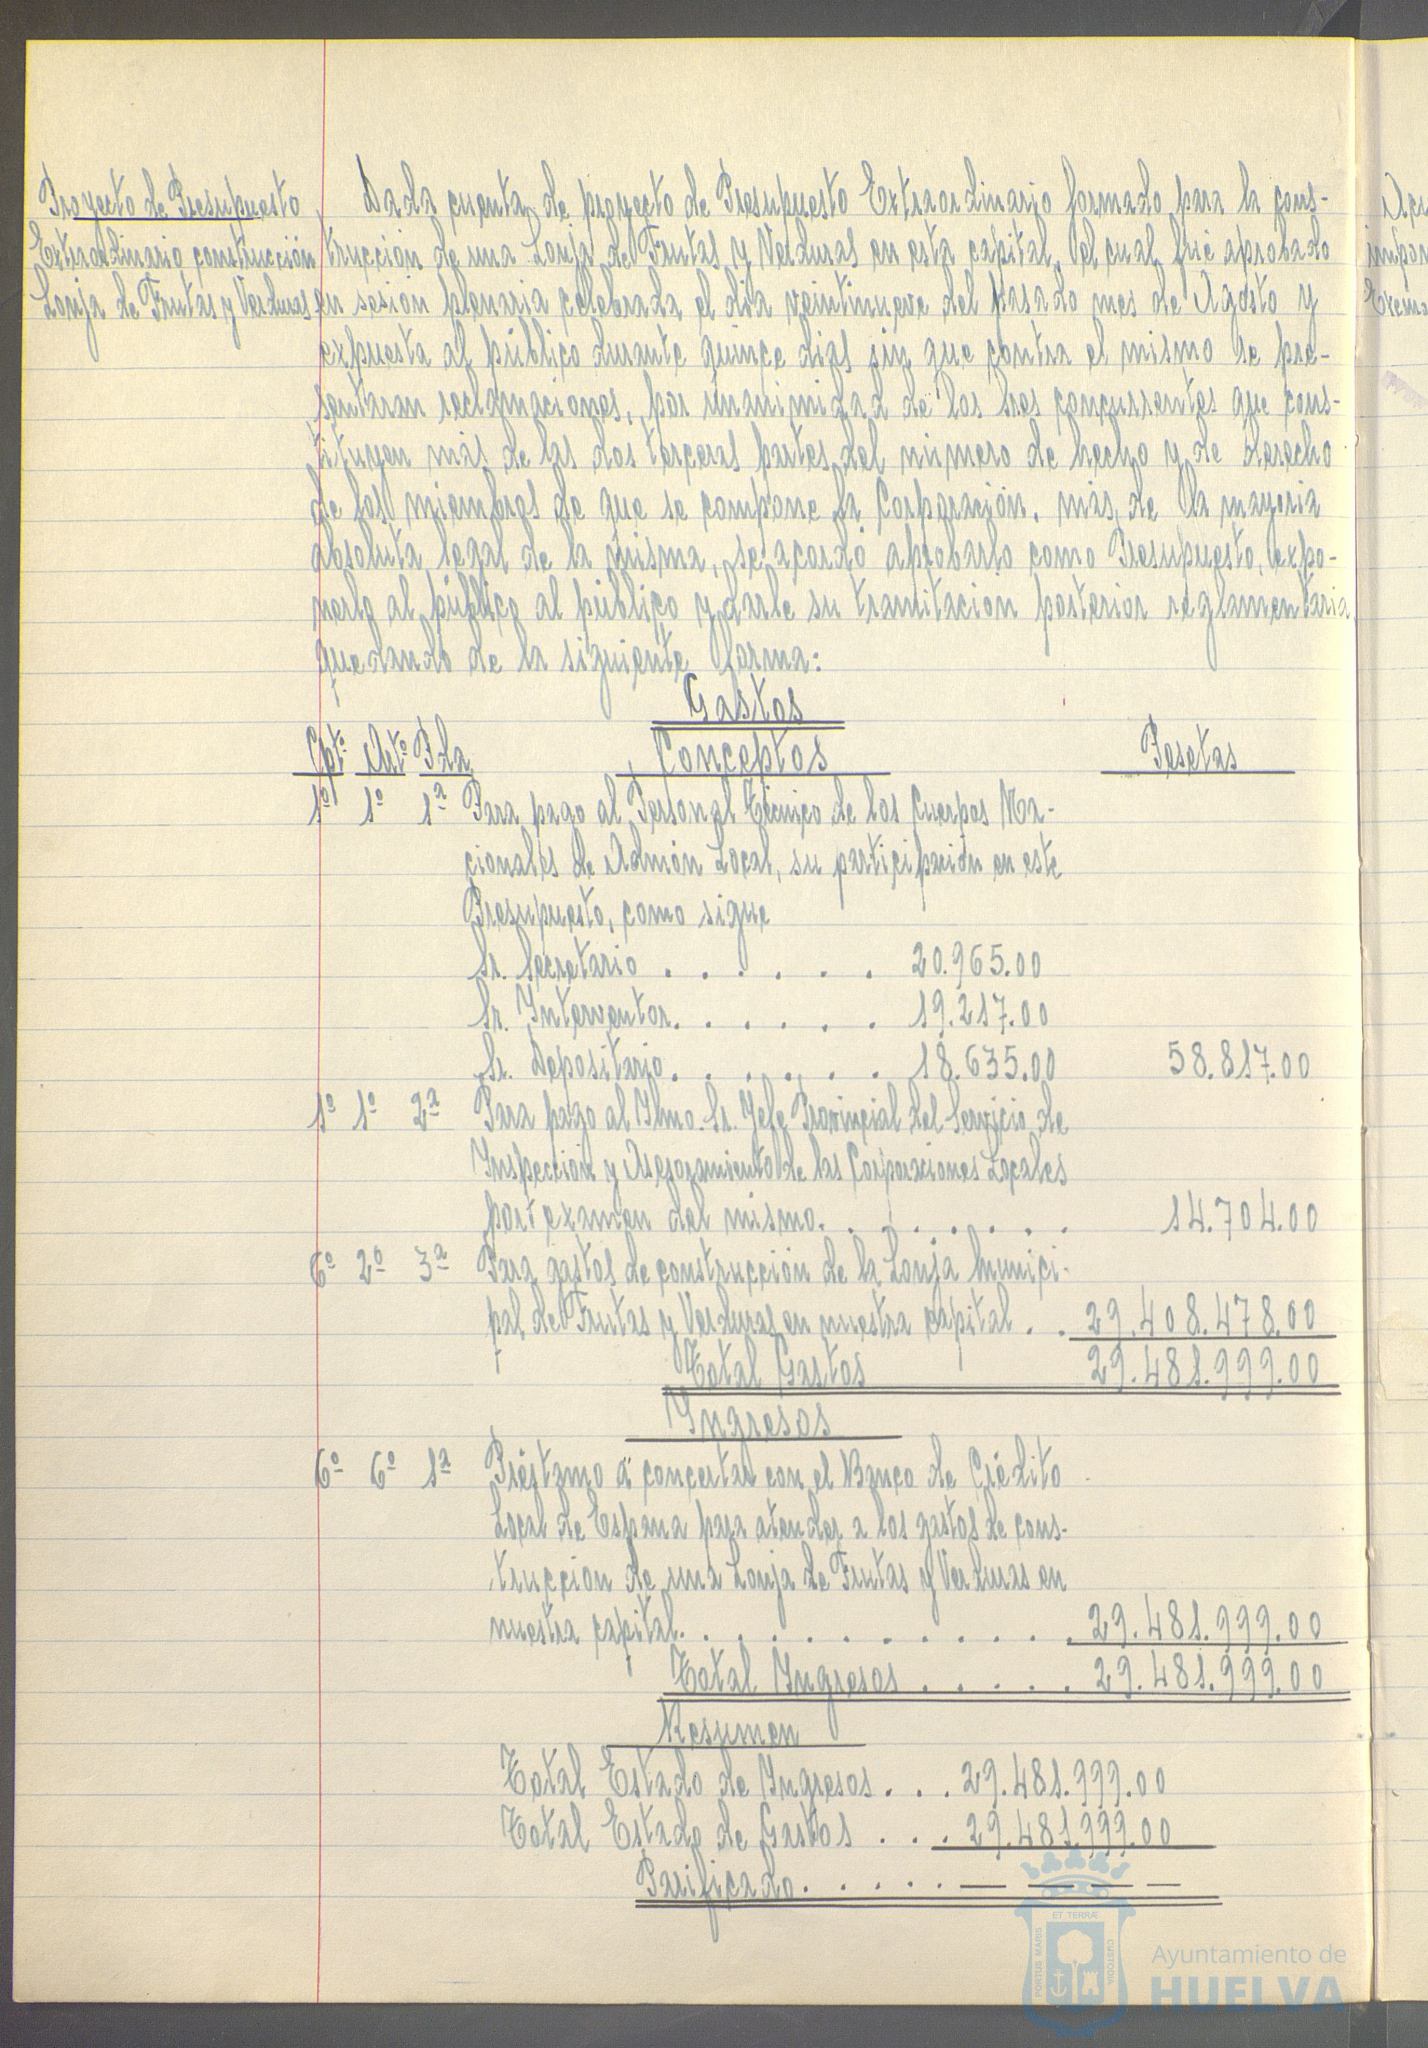 Proyecto de Presupuesto
Extraordinario construcción
Lonja de Frutas y Verduras
Dada cuenta de proyecto de Presupuesto Extraordinario formado para la cons-
trucción de una Lonja de Frutas y Verduras en esta capital, el cual fué aprobado
en sesión plenaria celebrada el dia veintinueve del pasado mes de Agosto y
expuesta al público durante quince dias sin que contra el mismo se pre-
sentaran reclamaciones, por unanimidad de los Sres concurrentes que cons-
tituyen más de las dos terceras partes del número de hecho y de derecho
de los miembros de que se compone la Corporación, más de la mayoria
absoluta legal de la misma, se acordó aprobarlo como Presupuesto, expo-
nerlo al público al público y darle su tramitación posterior reglamentaria
quedando de la siguiente forma:
Gastos
Cptº Artº Pda Conceptos Pesetas
1º 1º 1ª Para pago al Personal Técnico de los Cuerpos Na-
cionales de Admón Local, su participación en este
Presupuesto, como sigue
Sr. Secretario . . . . . . 20.965.00
Sr. Interventor. . . . . . 19.217.00
Sr. Depositario. . . . . . 18.635.00 58.817.00
1º 1º 2ª Para pago al Ilmo. Sr. Jefe Provincial del Servicio de
Inspección y Asesoramiento de las Corporaciones Locales
por examen del mismo. . . . . . . . 14.704.00
6º 2º 3ª Para gastos de construcción de la Lonja Munici-
pal de Frutas y Verduras en nuestra capital . . 29.408.478.00
Total Gastos 29.481.999.00
Ingresos
6º 6º 1ª Préstamo a concertar con el Banco de Crédito
Local de España para atender a los gastos de cons-
trucción de una Lonja de Frutas y Verduras en
nuestra capital. . . . . . . . . . . 29.481.999.00
Total Ingresos . . . . . 29.481.999.00
Resumen
Total Estado de Ingresos . . . 29.481.999.00
Total Estado de Gastos . . . 29.481.999.00
Parificado. . . . . . — — — —
ET TERRÆ
PORTUS MARIS
CUSTODIA
Ayuntamiento de
HUELVA